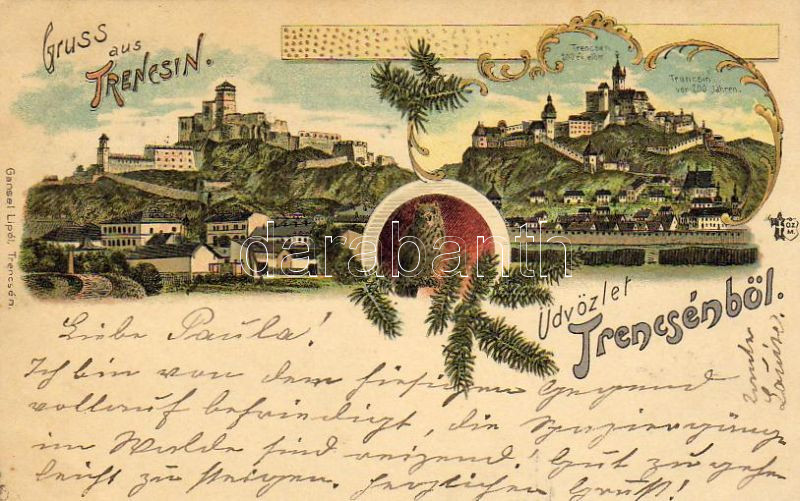 Gruss aus
TRENCSIN.
Trencsén
200 év előtt
Trencsin
vor 200 Jahren.
Gansel Lipót, Trencsén.
darabanth
Üdvözlet
Trencsénböl.
Liebe Paula!
Ich bin von dem hiesigen Gegend
vollauf befriedigt, die Spaziergänge
im Walde sind reizend! Gut zu gehen
leicht zu steigen. Herzlichen Gruss!
Tante
Louise